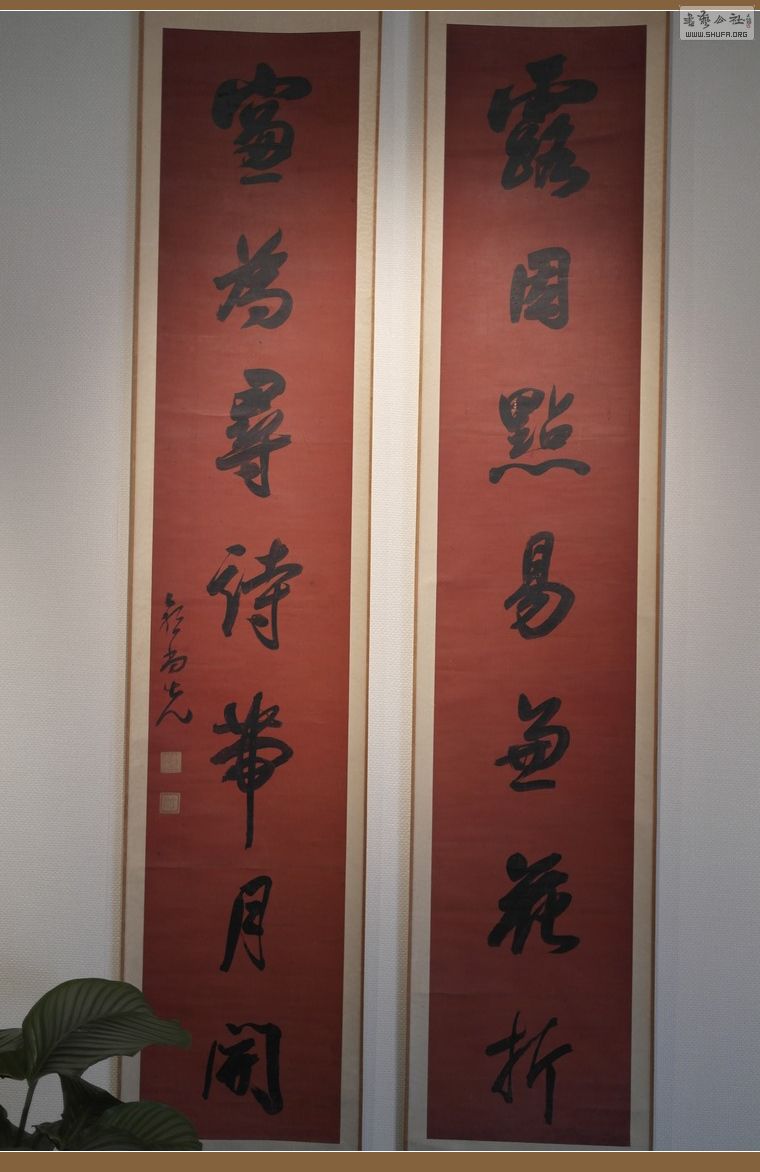 露因點易兼花折
窗為尋詩帶月開
程尚先
書藝公社
WWW.SHUFA.ORG